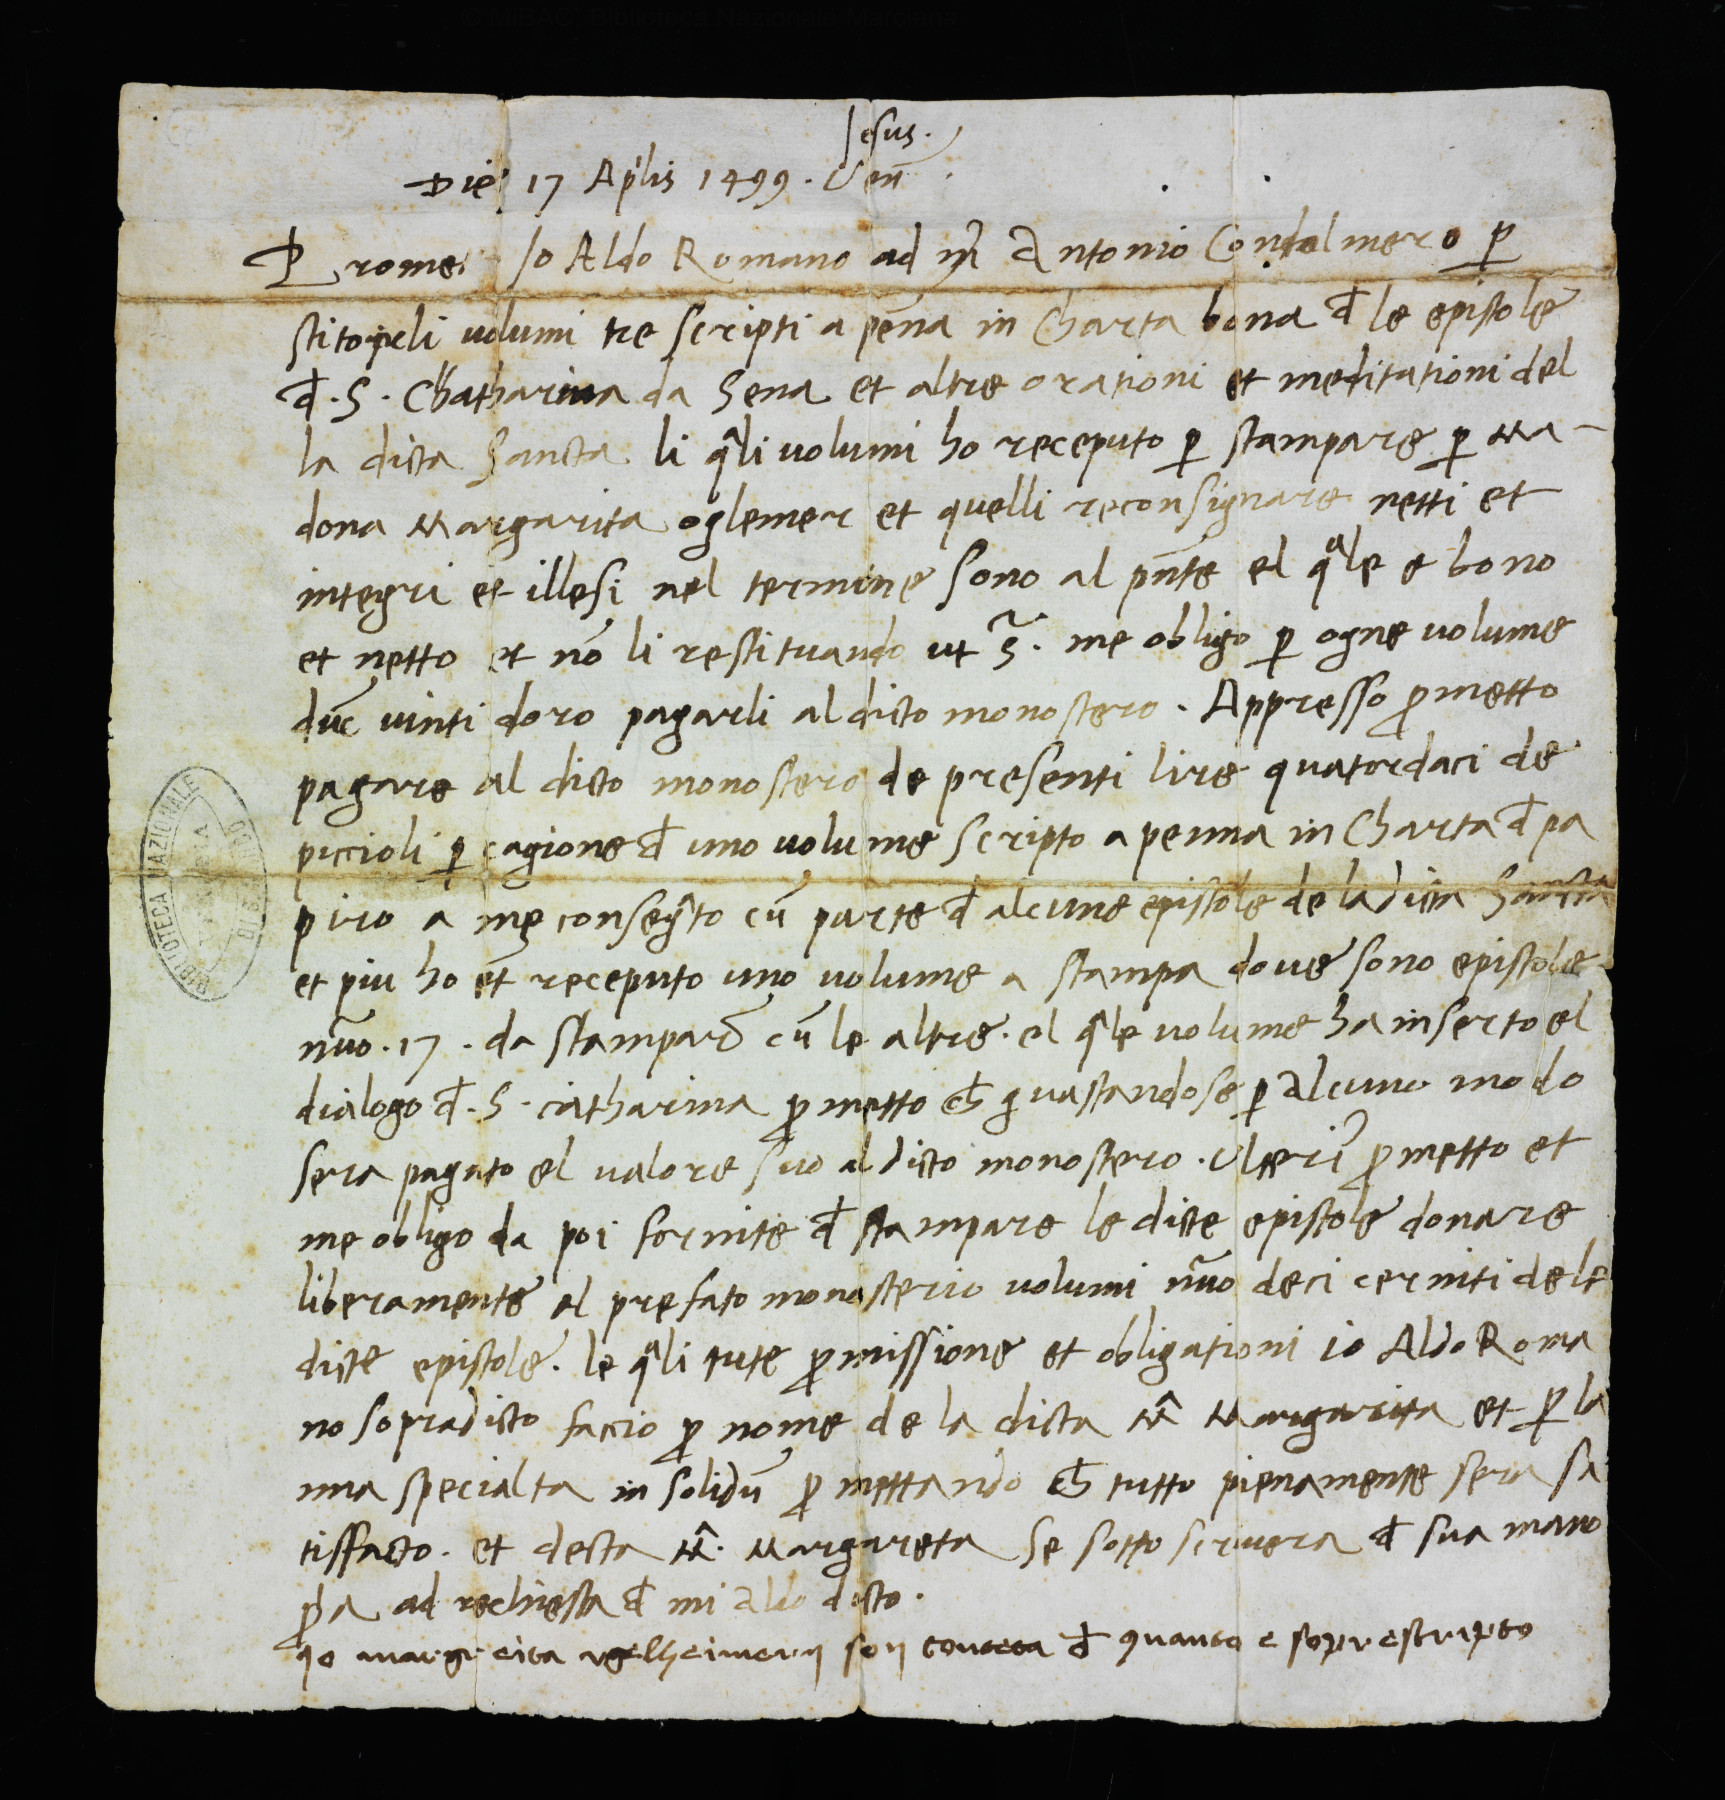 © MiBAC. Biblioteca Nazionale Marciana
Jesus.
Die 17 Ap'lis 1499. Ven̄
Promet Io Aldo Romano ad mr̃ Antonio Condolmero p̱
stito p̱ li volumi tre scripti a pēna in charta bona đ le epistole
đ. S. Chatharina da Sena et altre orationi et meditationi del
la dicta Sancta li q̃li volumi ho receputo p̱ stampare p̱ Ma-
dona Margarita oglemer et quelli reconsignare netti et
integri et illesi nel termine sono al pn̄te el qale e bono
et netto et nō li restituando ut s̃. me obligo p̱ ogne volume
duc̄ vinti doro pagarli al dicto monostero. Appresso ꝓmetto
pagare al dicto monostero de presenti lire quatordaci de
piccioli p̱ cagione đ uno volume scripto a penna in charta đ pa
piro a me conseg̃to cū parte đ alcune epistole de la dicta Sancta
et piu ho et̄ receputo uno volume a stampa dove sono epistole
nūo. 17. da stampar̃ cū le altre. el q̃le volume ha inserto el
dialogo đ. S. catharina ꝓmetto cħ guastandose p̱ alcuno modo
sera pagato el valore suo al dicto monostero. Ulteri' ꝓmetto et
me obligo da poi fornite đ stampare le dicte epistole donare
liberamente al prefato monasterio volumi nūo deci cerniti de le
dicte epistole. le qali tute ꝓmissione et obligationi io Aldo Roma
no sopradicto faccio ꝓ nome de la dicta Mᵃ Margarita et ꝓ la
mia specialta in solidū ꝓmettando cħ tutto pienamente sera sa
tisfacto. et decta Mᵃ. Margareta se sotto scrivera đ sua mano
ꝓa ad rechiesta đ mi Aldo dicto.
io margreita ugelheimerij son contta đ quanto e soprescripto
BIBLIOTECA NAZIONALE
DI S. MARCO